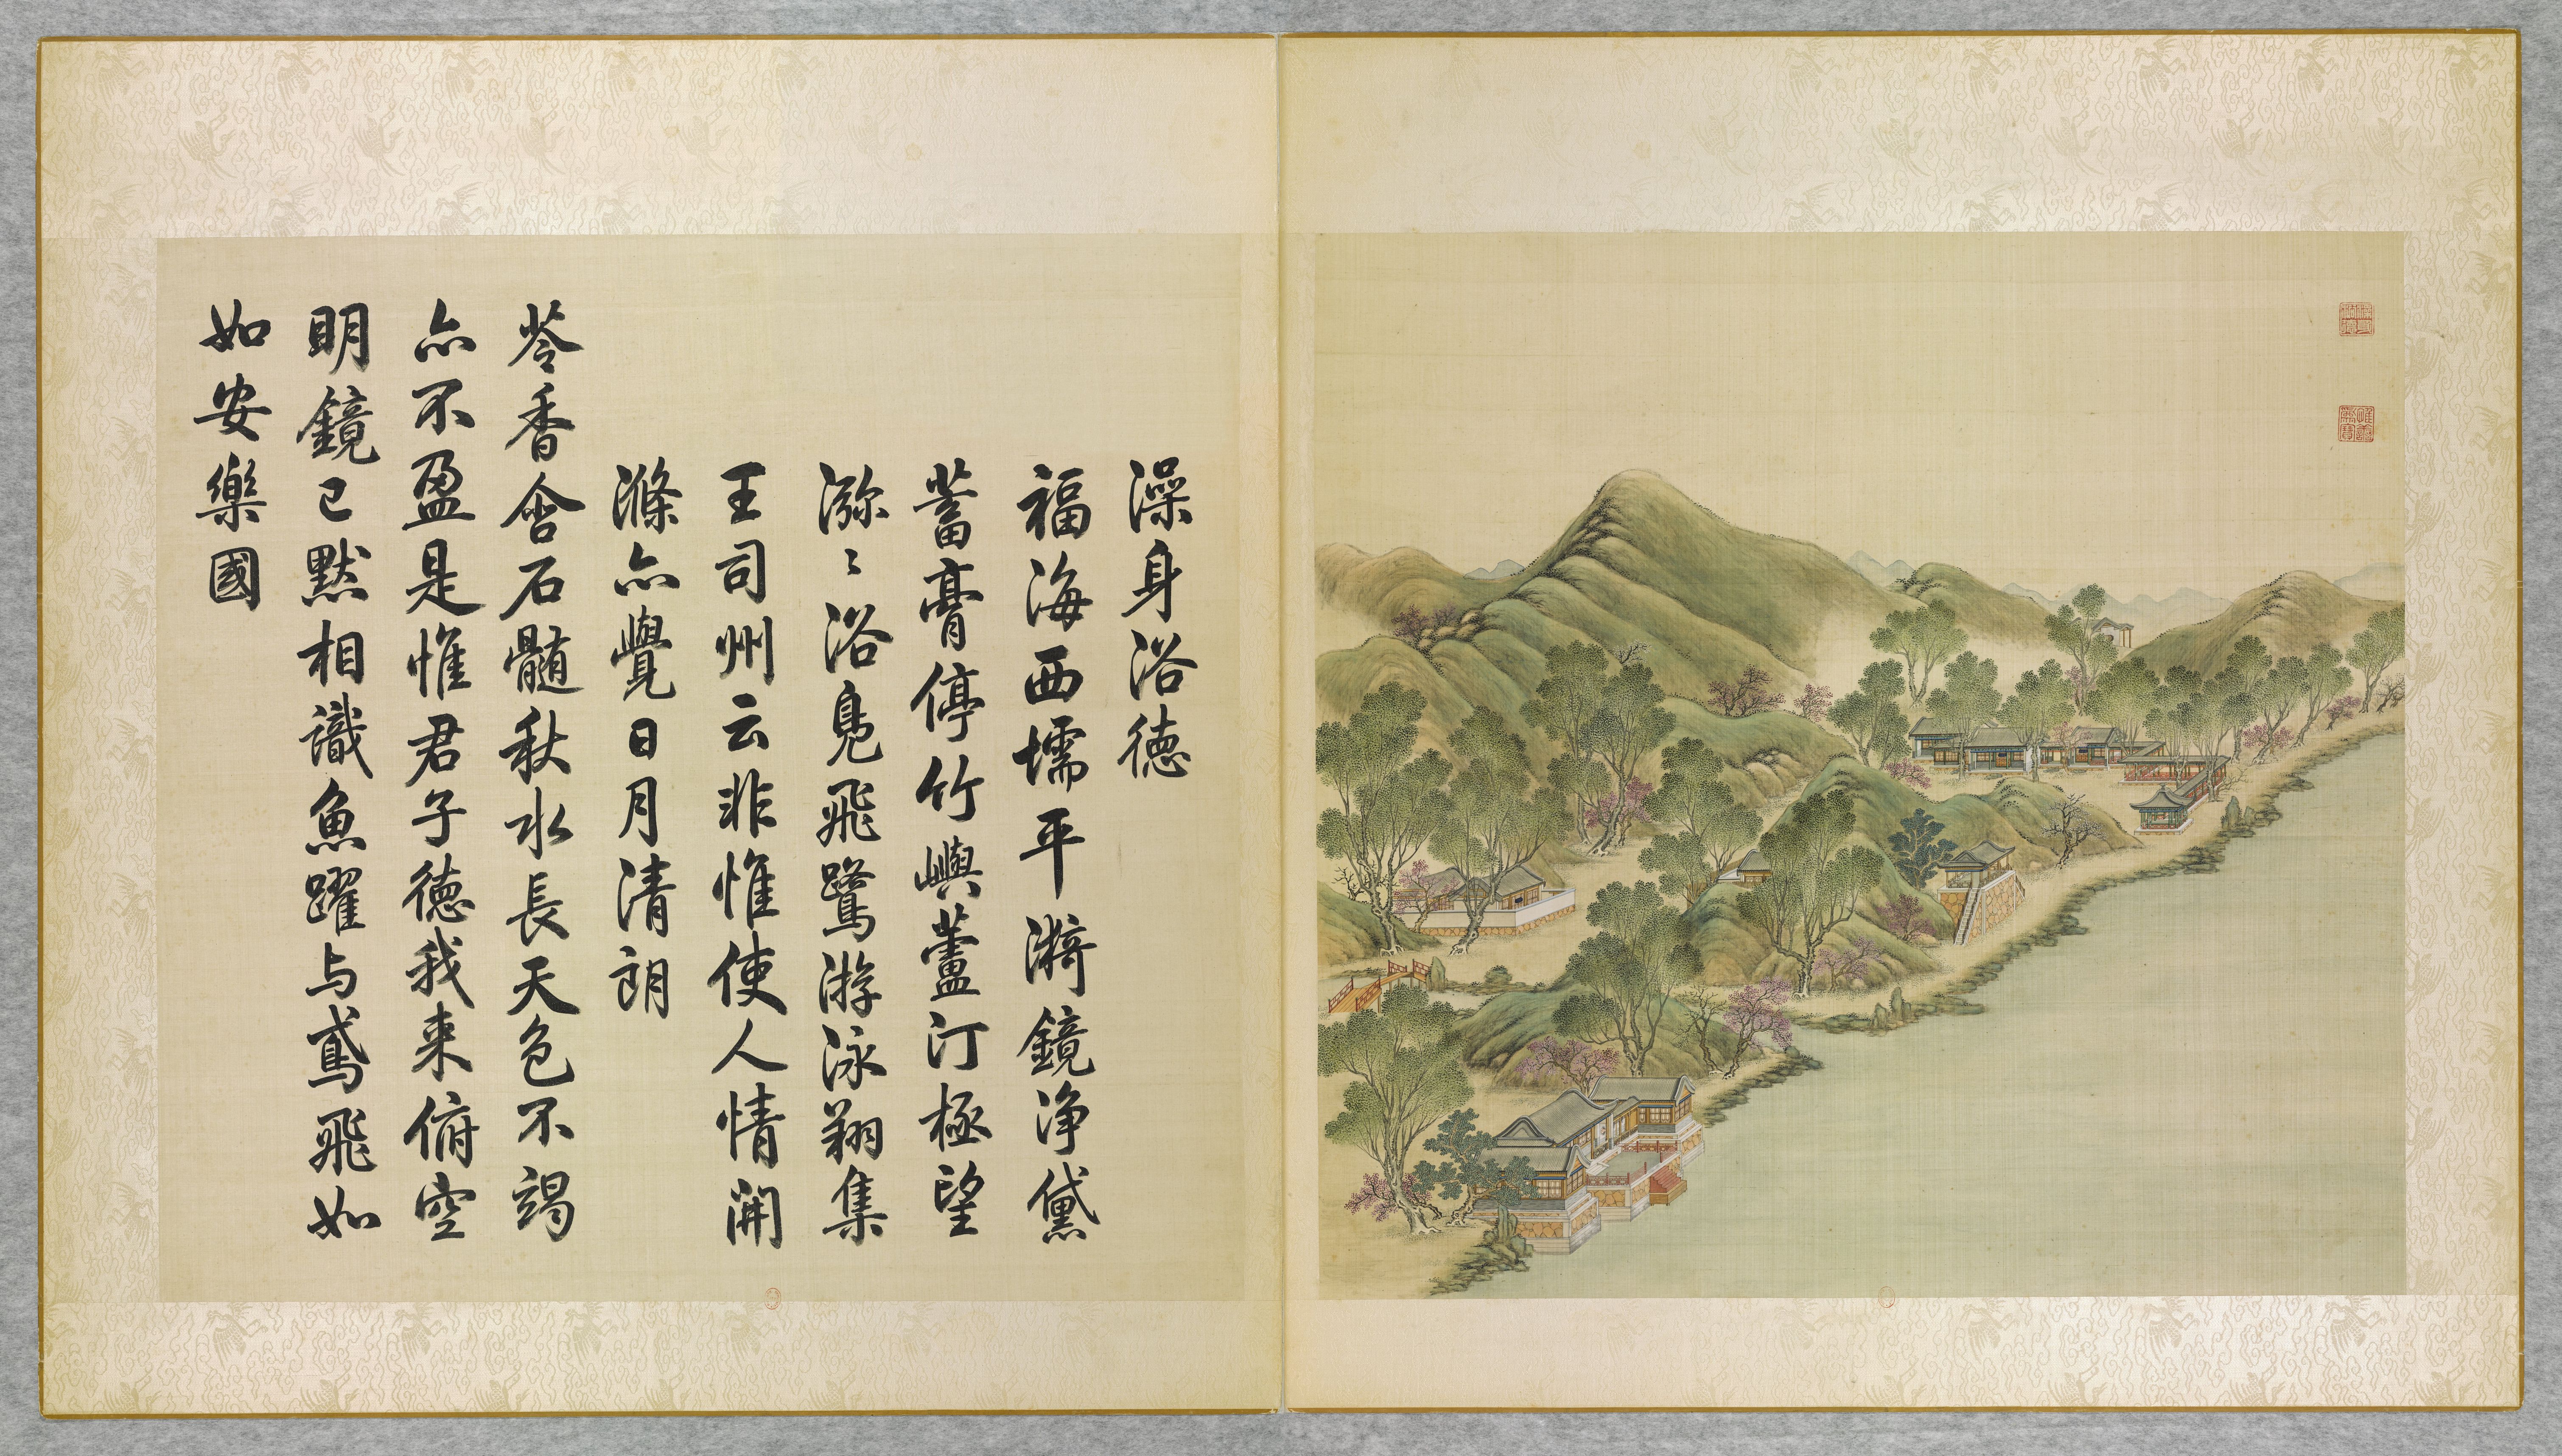 澡身浴德
福海西壖平漪鏡净黛
蓄膏停竹嶼蘆汀極望
㳽〻浴鳬飛鷺游泳翔集
王司州云非惟使人情開
滌亦覺日月清朗
苓香含石髓秋水長天色不竭
亦不盈是惟君子德我来俯空
明鏡已默相識魚躍与鳶飛如
如安樂國